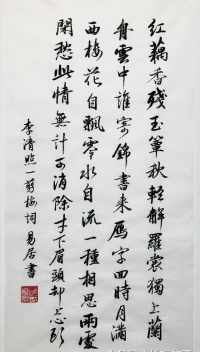 紅藕香殘玉簟秋輕解羅裳獨上蘭
舟雲中誰寄錦書来雁字回時月滿
西樓花自飄零水自流一種相思兩處
閑愁此情無計可消除才下眉頭却上心頭
李清照一剪梅詞易居書